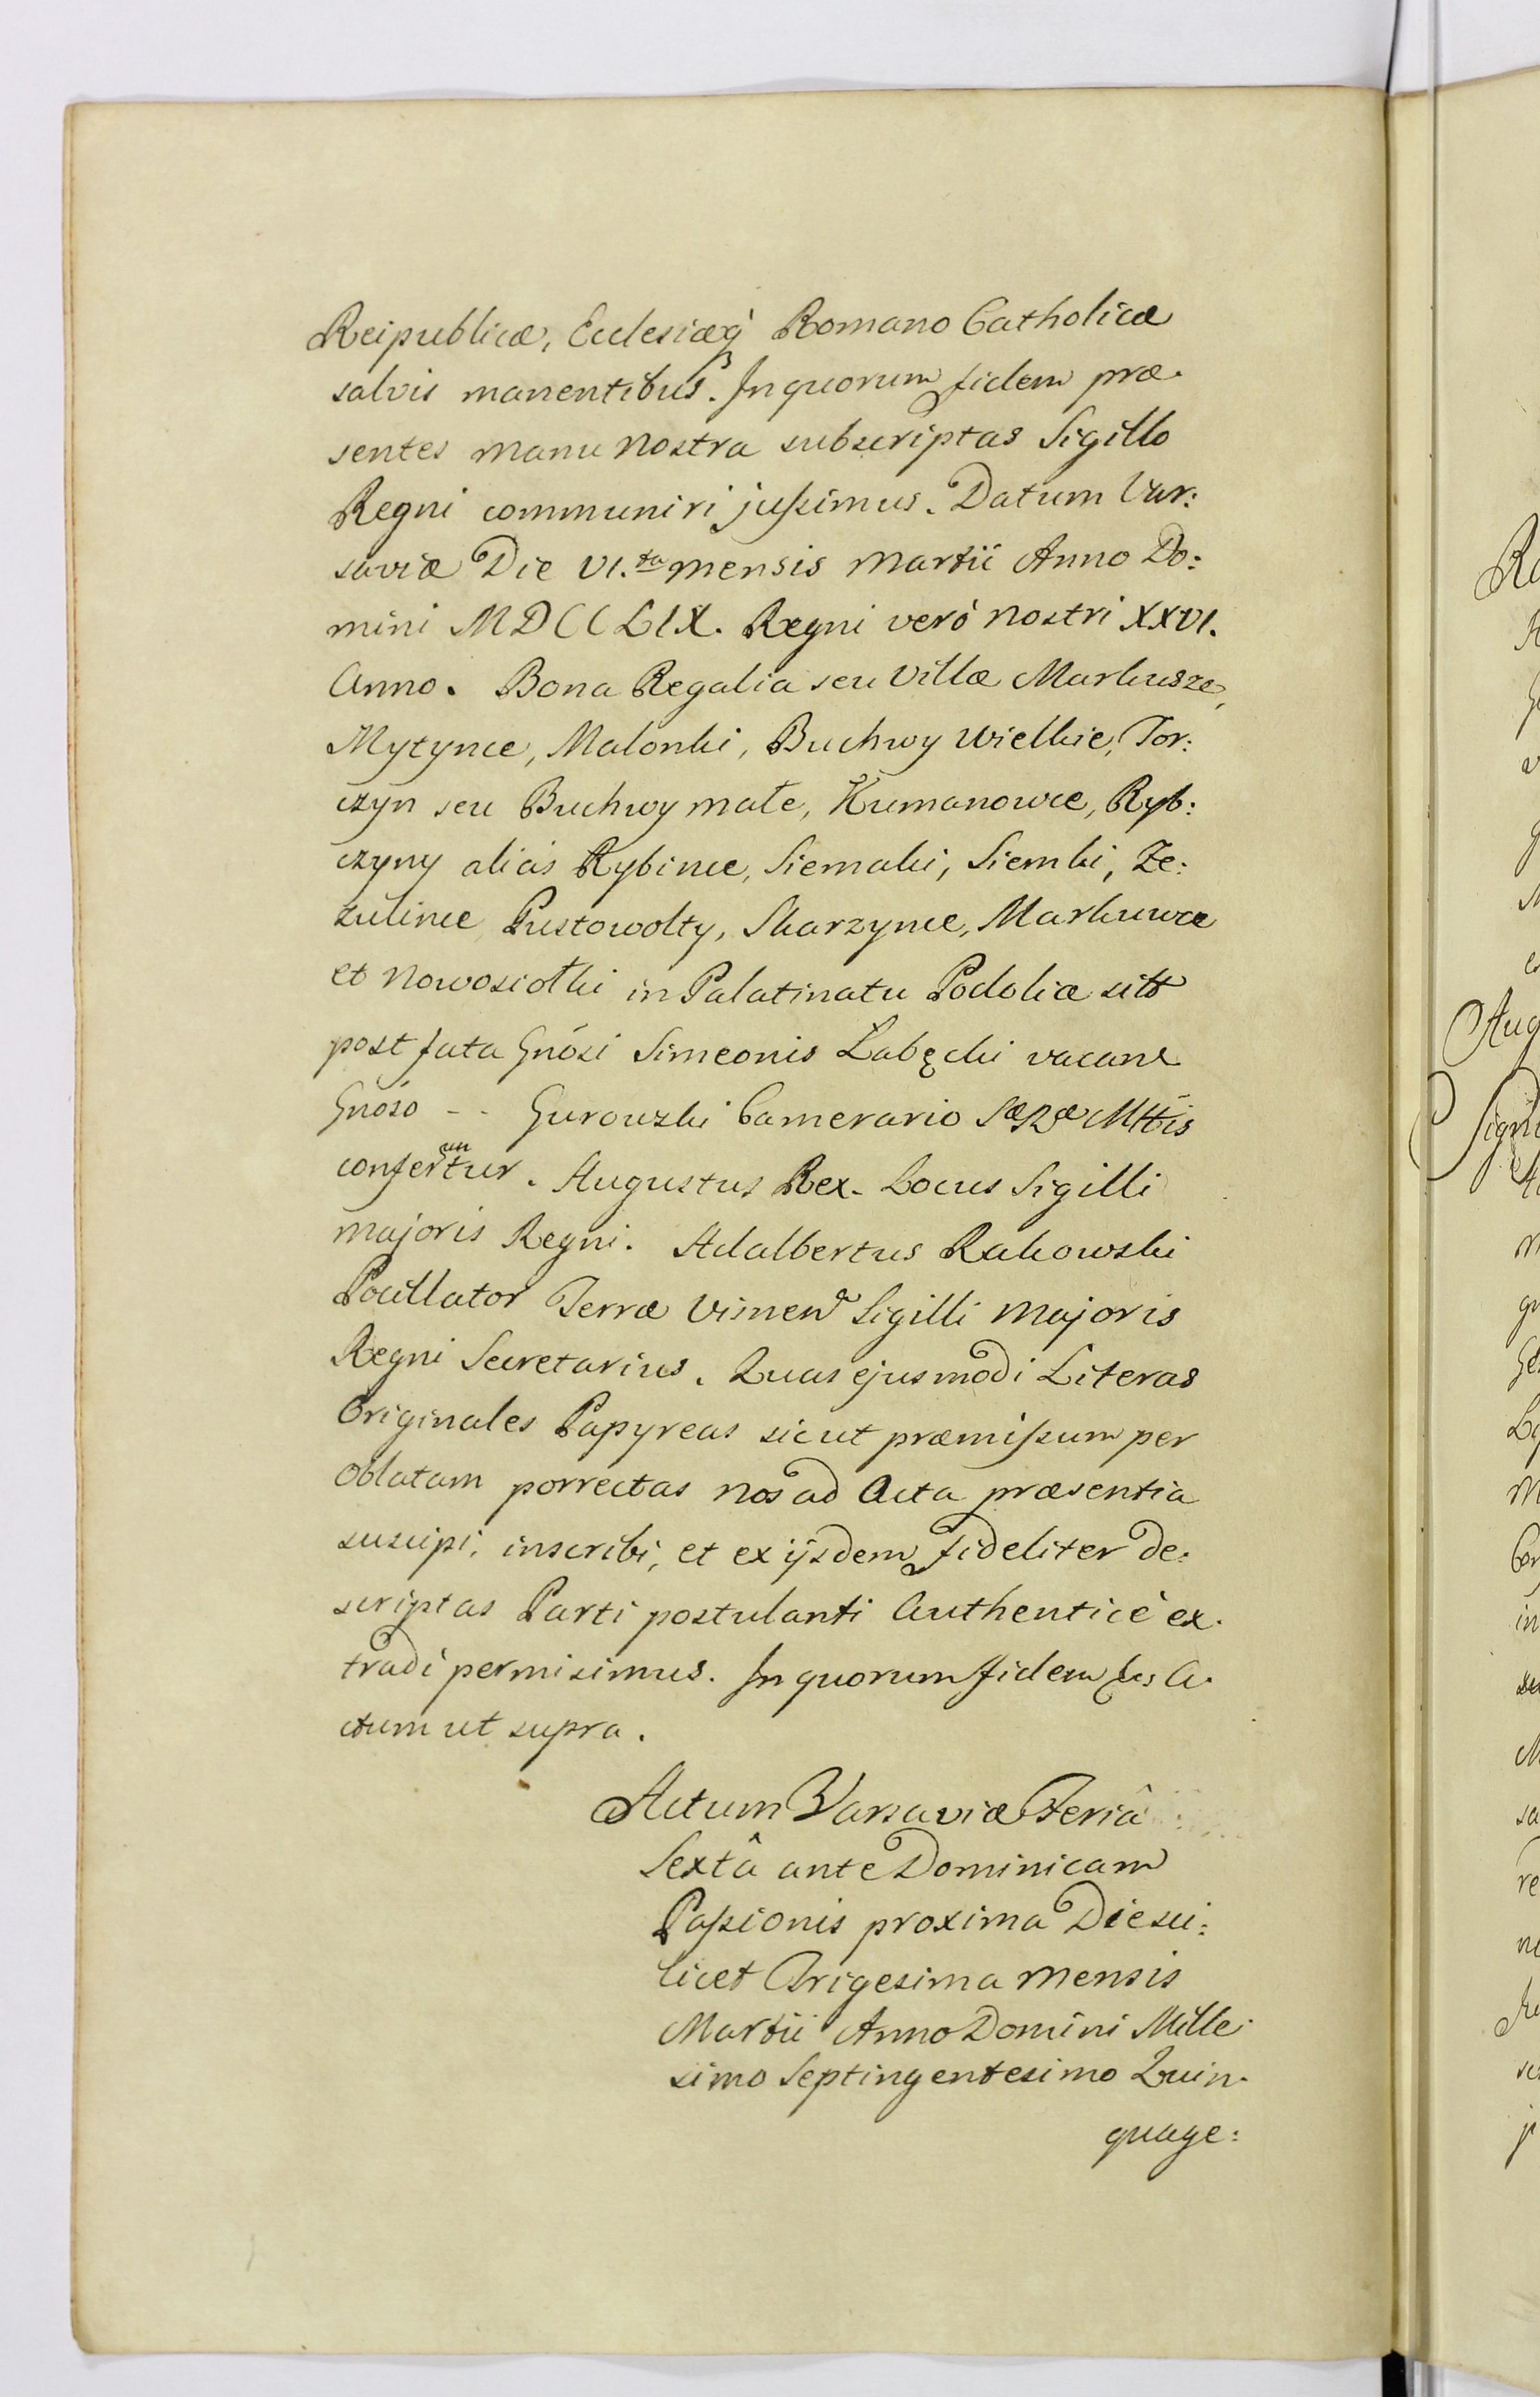 Reipublicæ, Ecclesiæq́ Romano Catholicæ
salvis manentibus. In quorum fidem præ-
sentes manu nostra subscriptas Sigillo
Regni communiri juſsimus. Datum Var:
saviæ Die VI.ta mensis Martii Anno Do:
mini MDCCLIX. Regni verò nostri XXVI.
Anno. Bona Regalia seu Villæ Markusze,
Mytynce, Malonki, Buchwy Wielkie, Tor:
czyn seu Buchwy małe, Kumanowce, Ryb:
czyny aliàs Rybince, Siemaki, Siemki, Ze:
zulince Pustowolty, Skarzynce, Markuwce
et Nowosiołki in Palatinatu Podoliæ sitt
post fata Gnósi Simeonis Łabęcki vacane
Gnóso - - Gurowzki Camerario Mttis
conferuntur. Augustus Rex. Locus Sigilli
majoris Regni. Adalbertus Rakowski
Pocillator Terræ Visnen Sigilli Majoris
Regni Secretarius. Quas ejusmodi Literas
Originales Papyreas sicut præmiſsum per
Oblatam porrectas nos ad Acta præsentia
suscipi, inscribi, et ex ijsdem fideliter de:
scriptas Parti postulanti Authenticè ex-
tradi permisimus. In quorum fidem A-
ctum ut supra.
Actum Varsaviæ Feriâ
Sextâ ante Dominicam
Paſsionis proxima Die sci:
licet Trigesima mensis
Martii Anno Domini Mille-
simo Septingentesimo Quin-
quage: